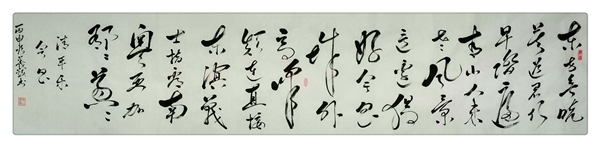 东方欲晓
莫道君行
早踏遍
青山人未
老风景
这边独
好会昌
城外
高峰
颠连直接
东溟战
士指看南
粤更加
郁郁葱葱
清平乐
会昌
丙申